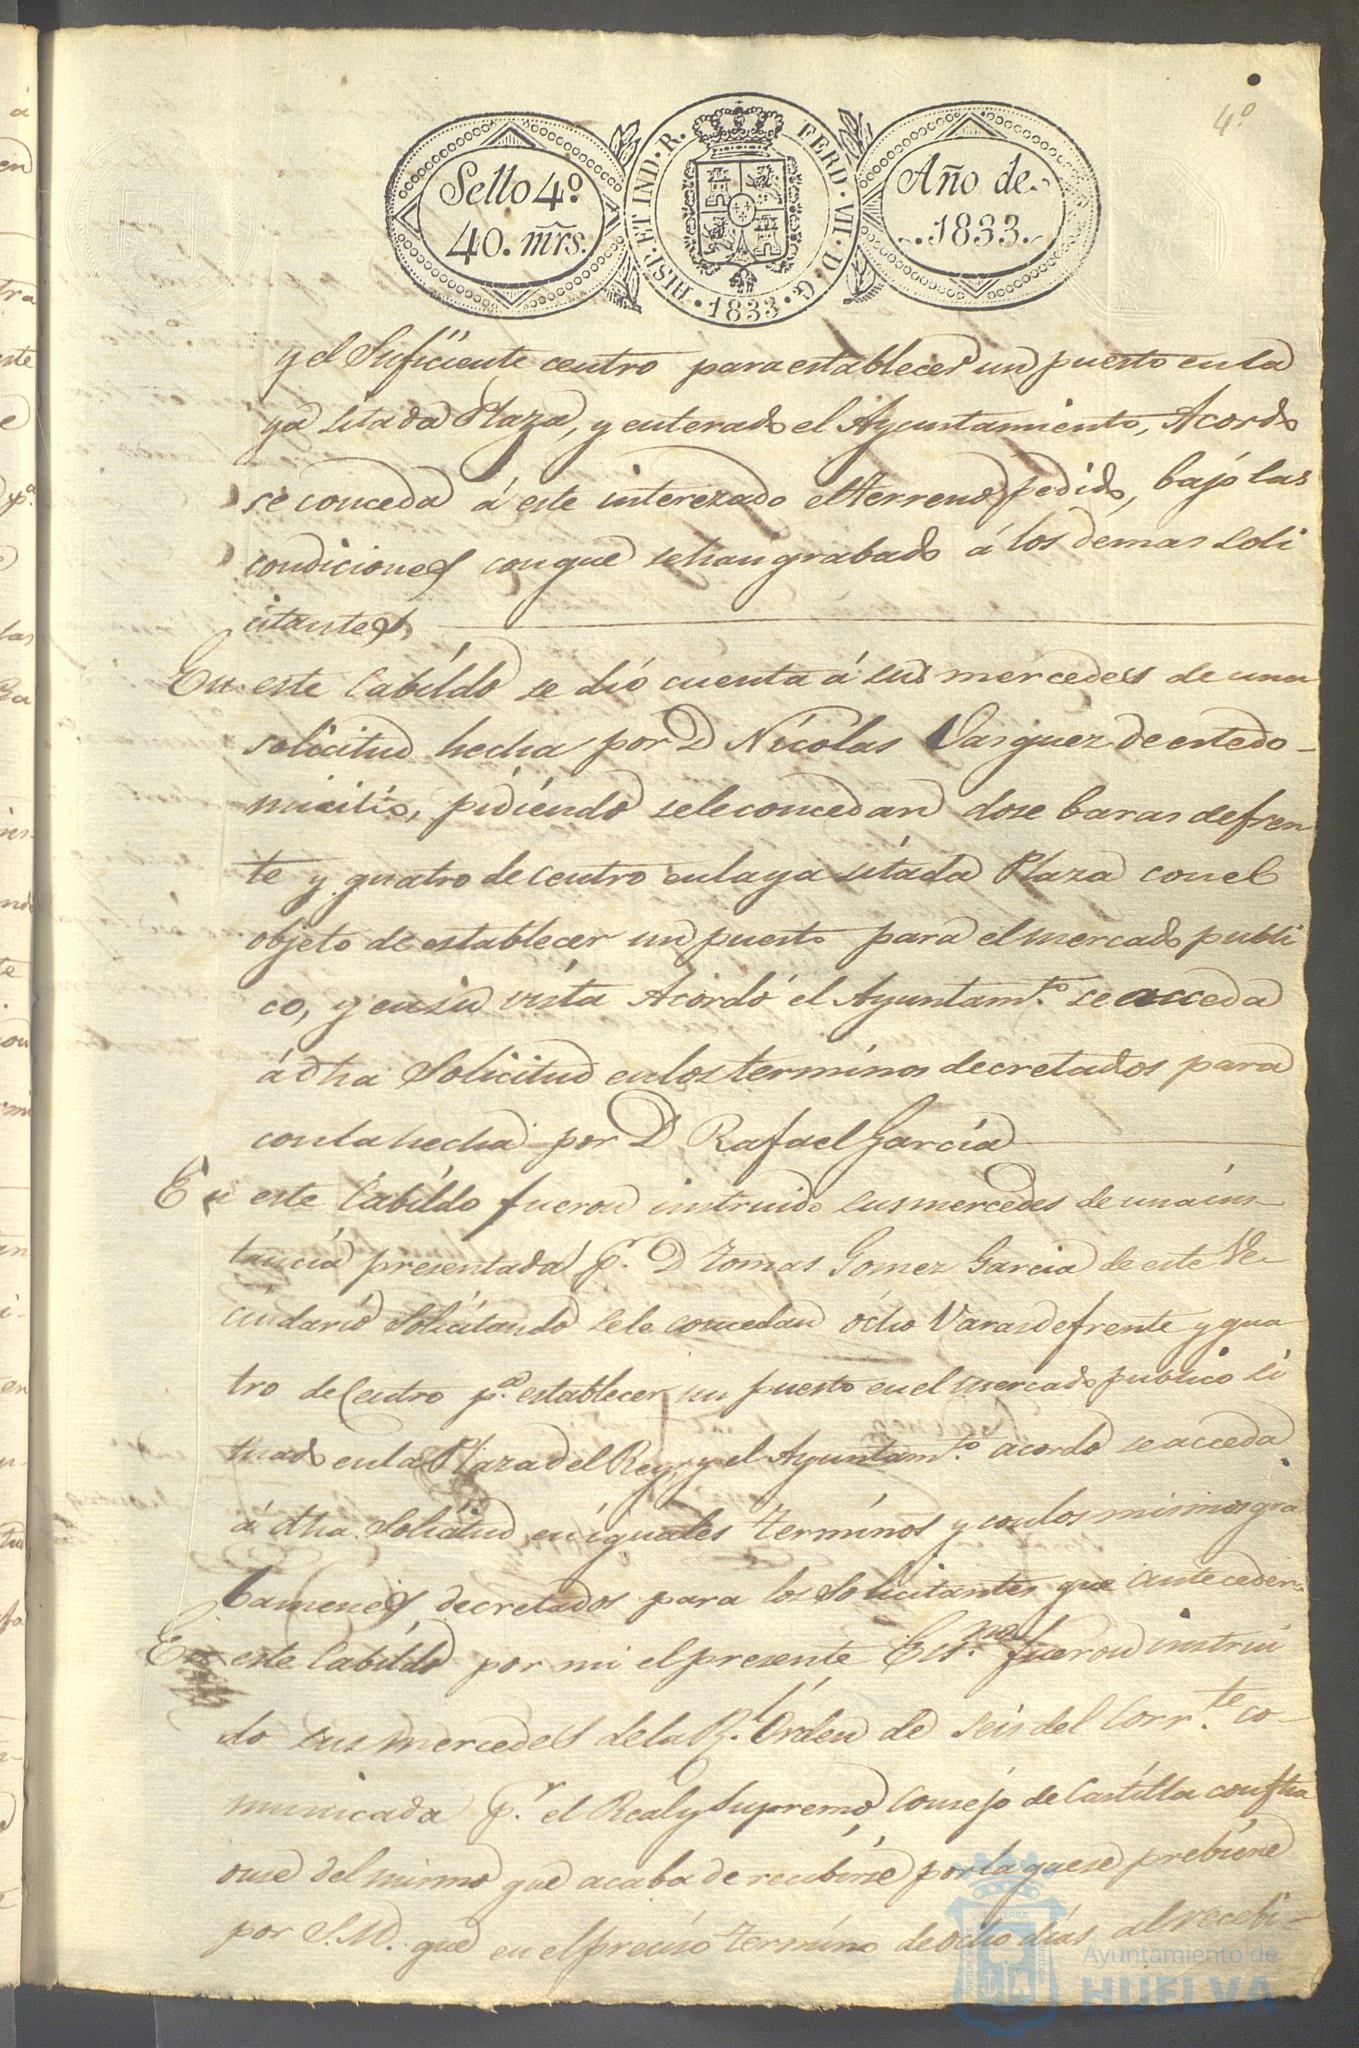 4º
Sello 4º
40. mrs.
HISP. ET IND. R. FERD. VII. D. G. 1833.
Año de
1833.
y el Suficiente centro para establecer un puesto en la
ya citada Plaza, y enterado el Ayuntamiento, Acordo
se conceda á este interezado el terreno pedido, bajo las
condiciones con que se han grabado á los demas soli
citantes
En este Cabildo se dió cuenta á sus mercedes de una
solicitud hecha por D Nicolas Vasquez de este do-
micilio, pidiendo se le concedan dose baras de fren
te y quatro de centro en la ya sitada Plaza con el
objeto de establecer un puesto para el mercado publi
co, y en su vista Acordó el Ayuntam.to se acceda
á dha Solicitud en los terminos decretados para
con la hecha por D Rafael Garcia
En este Cabildo fueron instruido sus mercedes de una ins-
tancia presentada p.r D Tomas Gomez Garcia de este Ve-
cindario Solicitando se le concedan ocho Varas de frente y qua
tro de Centro p.a establecer un puesto en el mercado publico si
tuado en la Plaza del Rey, y el Ayuntam.to acordo se acceda
á dha Solicitud en iguales terminos y con los mismos gra
bamenes decretados para los Solicitantes que anteceden
En este Cabildo por mi el presente Es.no fueron instrui
do sus mercedes de la R.l Orden de seis del Corr.te co-
municada p.r el Real y Supremo Consejo de Castilla con fha
onse del mismo que acaba de recibirse por la que se prebiene
por S.M. que en el preciso termino de ocho dias al recebi-
Ayuntamiento de
HUELVA